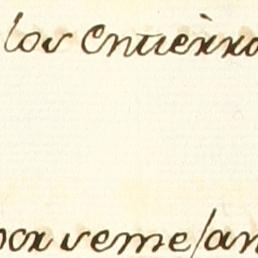 los entierro
por seme/an